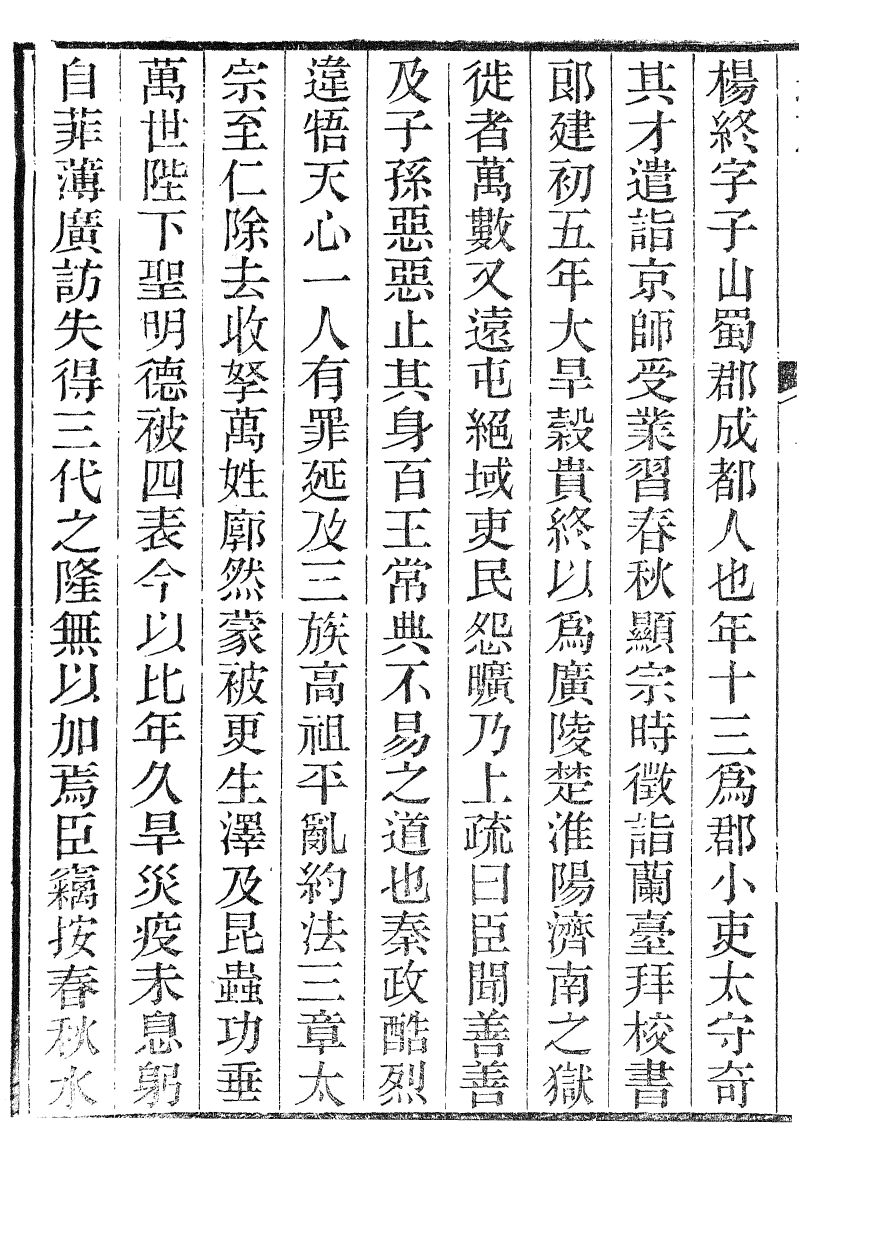 楊終字子山蜀郡成都人也年十三爲郡小吏太守奇
其才遣詣京師受業習春秋顯宗時徵詣蘭臺拜校書
郎建初五年大旱穀貴終以爲廣陵楚淮陽濟南之獄
徙者萬數又遠屯絕域吏民怨曠乃上疏曰臣聞善善
及子孫惡惡止其身百王常典不易之道也秦政酷烈
違啎天心一人有罪延及三族高祖平亂約法三章太
宗至仁除去收孥萬姓廓然蒙被更生澤及昆蟲功垂
萬世陛下聖明德被四表今以比年久旱災疫未息躬
自菲薄廣訪失得三代之隆無以加焉臣竊按春秋水